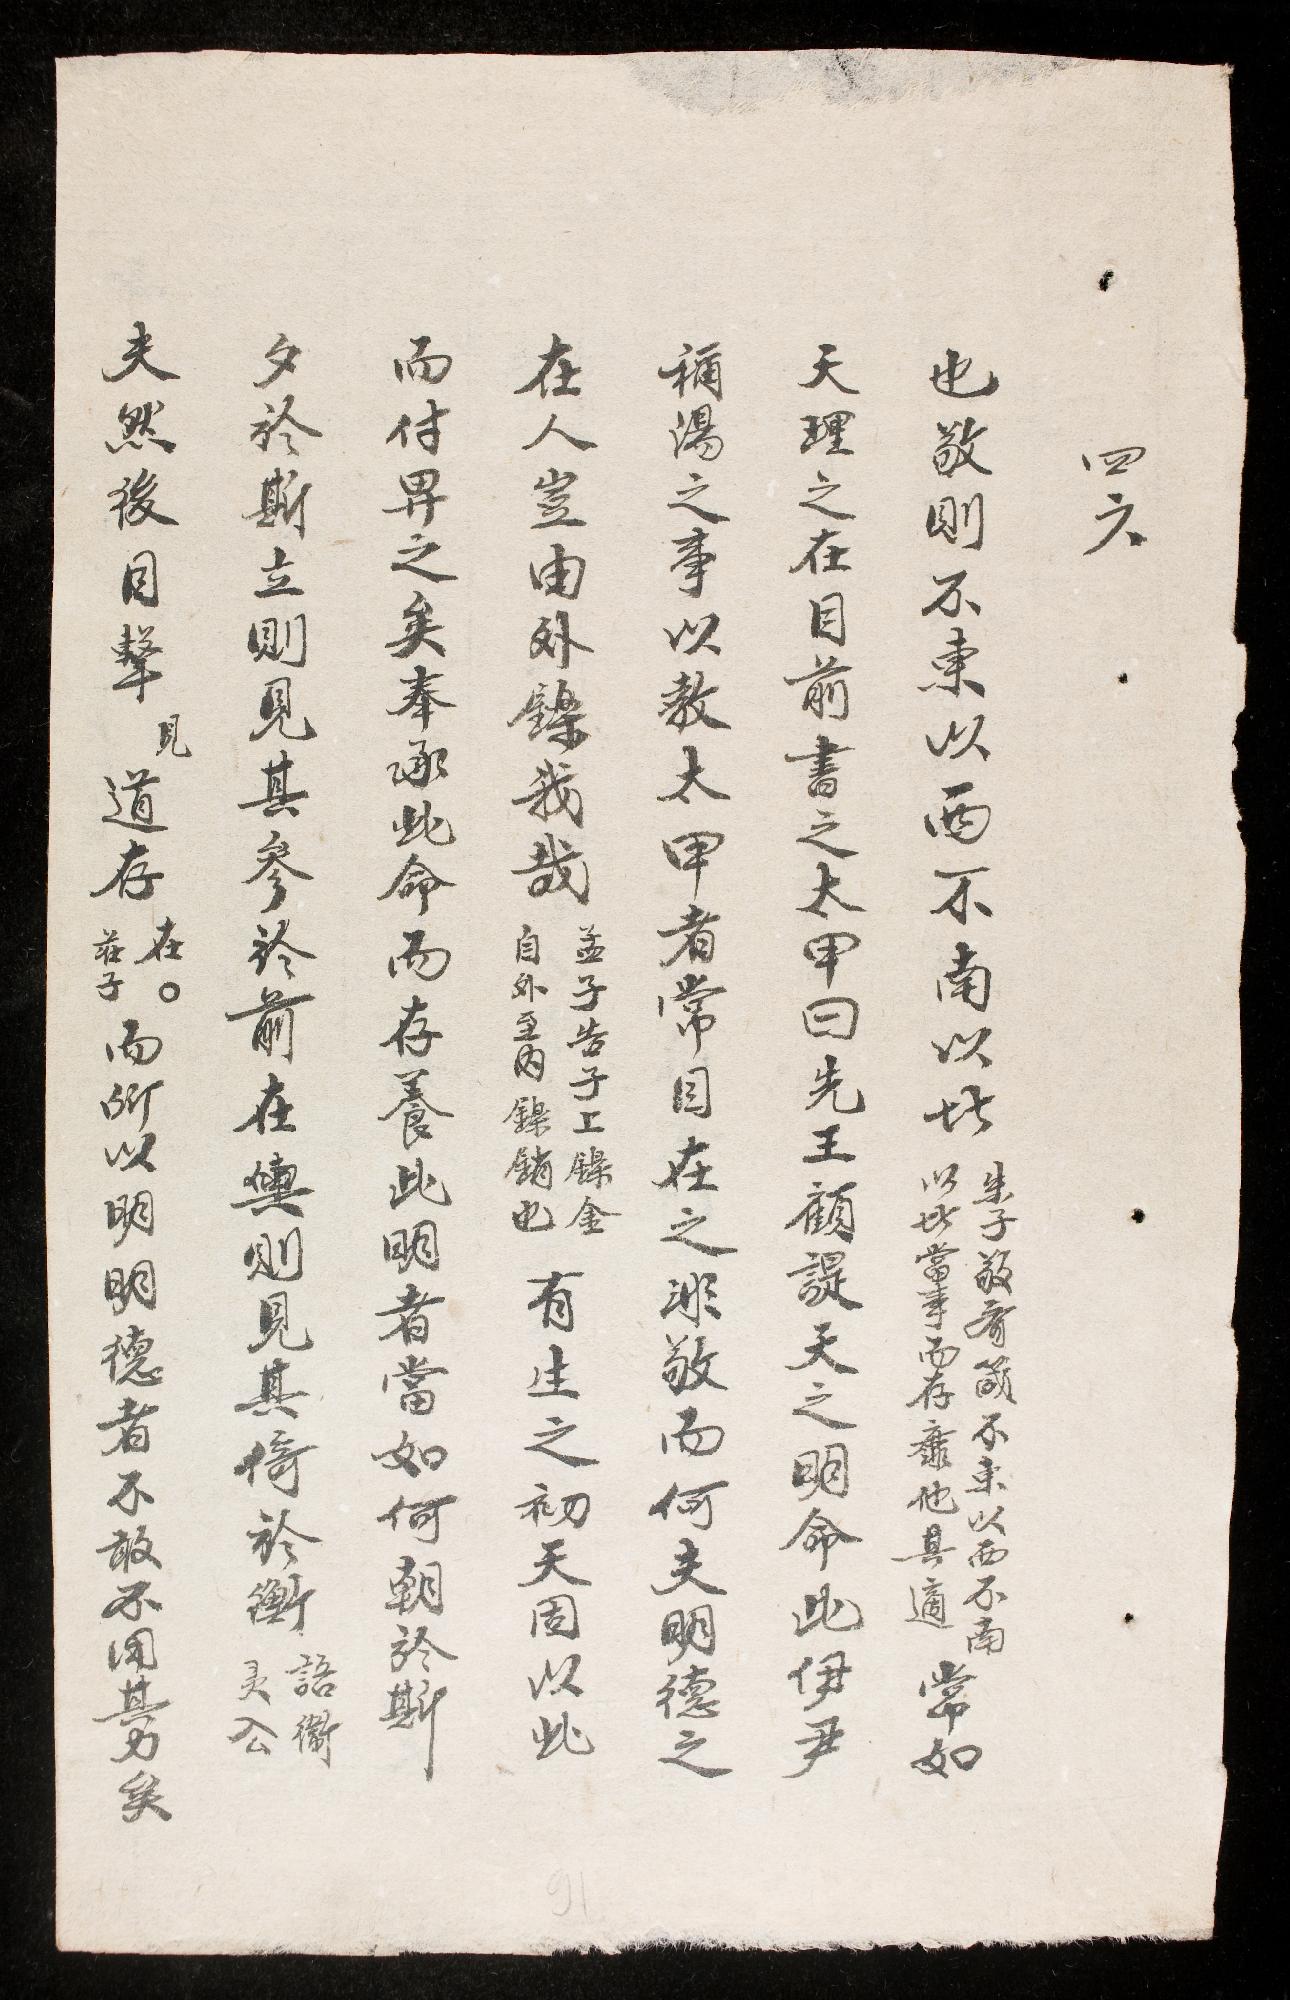 四六
也敬則不東以西不南以北 朱子敬齋箴不東以西不南以北當事而存靡他其適 常如
天理之在目前書之太甲曰先王顧諟天之明命此伊尹
稱湯之事以教太甲者常目在之非敬而何夫明德之
在人豈由外鑠我哉 孟子告子上鑠金自外至內鑠銷也 有生之初天固以此
而付畀之矣奉承此命而存養此明者當如何朝於斯
夕於斯立則見其參於前在輿則見其倚於衡 語衛灵公
夫然後目擊 見 道存 在。莊子 而所以明明德者不敢不用其力矣
91